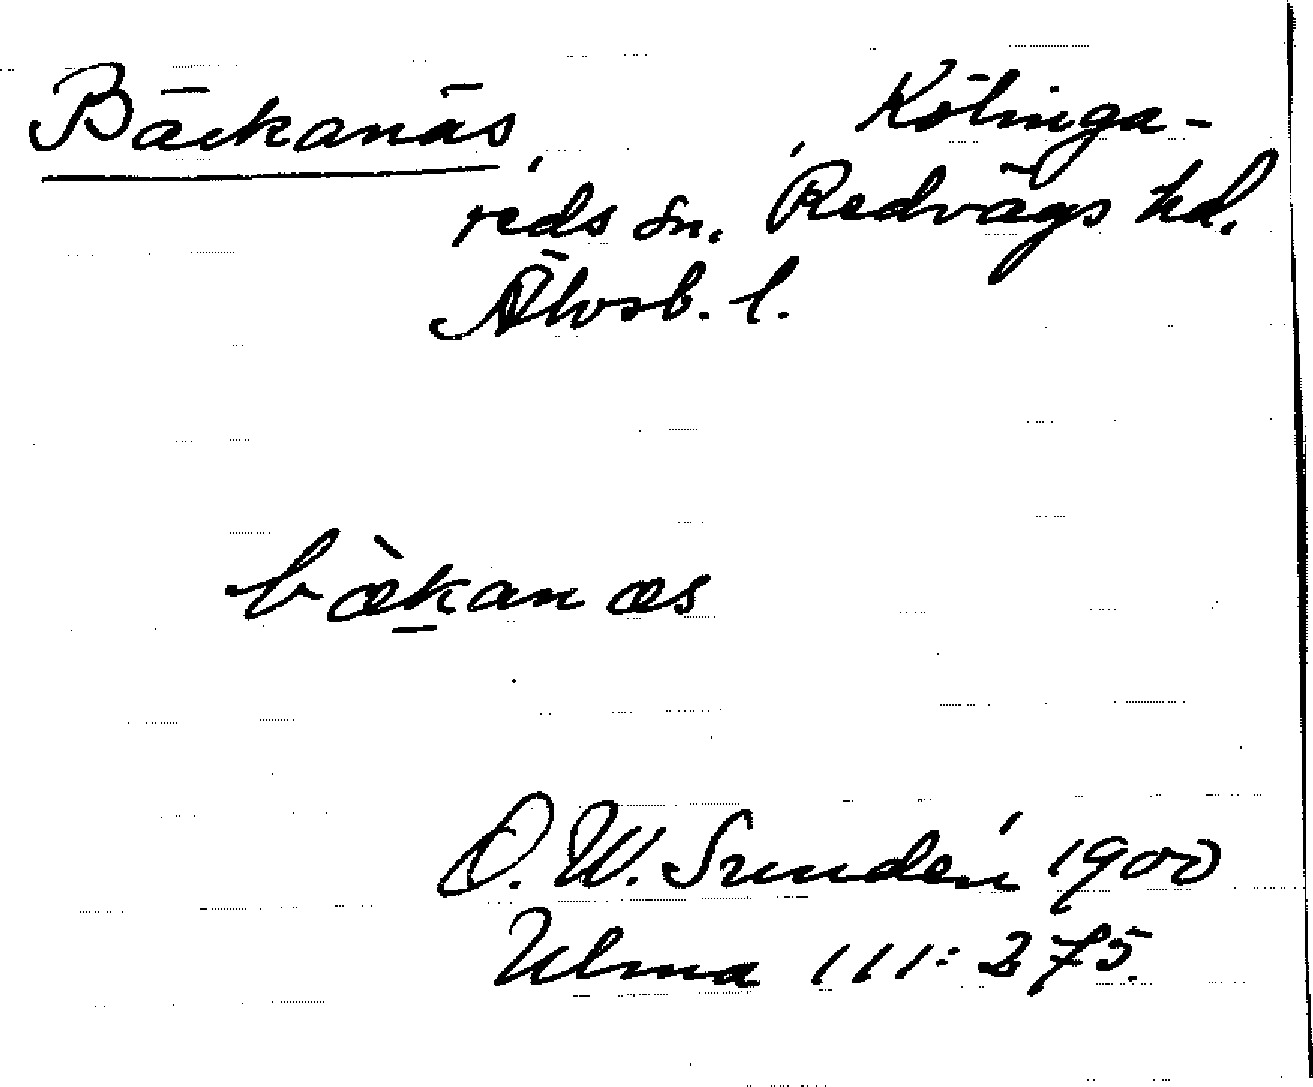 Bäckanäs, Kölinga-
reds sn. Redvägs hd.
Älvsb. l.
bæ̀k̠anæs
D. W. Sundén 1900
Ulma 111:275.